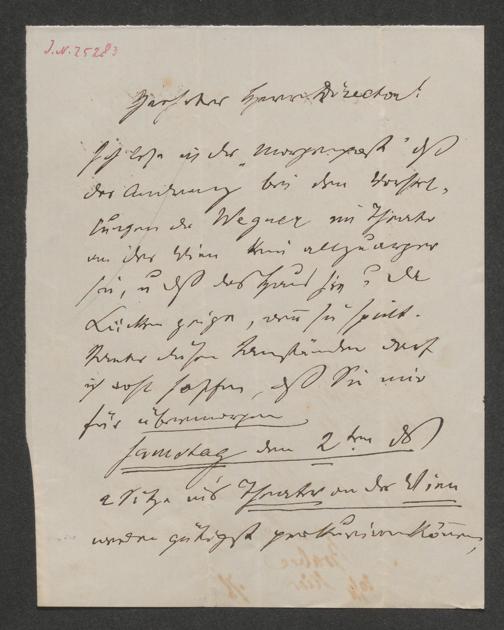 J.N. 25283
Verehrter Herr Director!
Ich lese in der „Morgenpost“ daß
der Andrang bei den Vorstel-
lungen der Wegner im Theater
an der Wien kein allzuarger
sei, u daß das Haus hie u da
Lücken zeige, wenn sie spielt.
Unter diesen Umständen darf
ich wohl hoffen, daß Sie mir
für übermorgen
Samstag den 2ten dß
2 Sitze in's Theater an der Wien
werden gütigst prokuriren können,